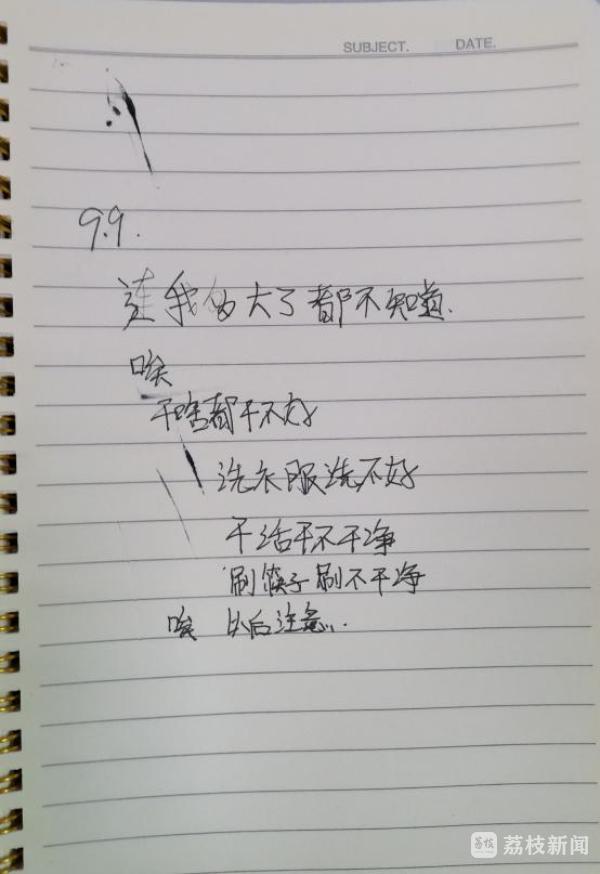 SUBJECT. DATE.
9.9.
连我多大了都不知道.
唉
干啥都干不好
洗衣服洗不好
干活干不干净
刷筷子刷不干净
唉 以后注意...
荔枝 荔枝新闻